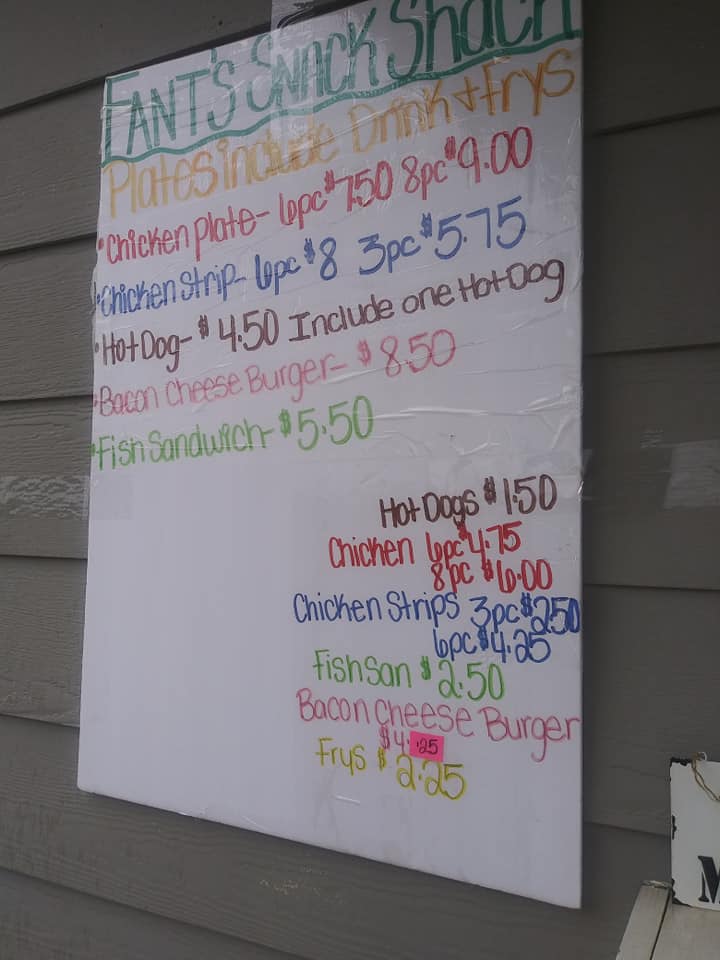 FANT'S SNACK Shack
Plates include Drink + Frys
• Chicken Plate- 6pc $7.50 8pc $9.00
• Chicken Strip- 6pc $8 3pc $5.75
• Hot Dog- $4.50 Include one Hot Dog
• Bacon Cheese Burger- $8.50
• Fish Sandwich- $5.50
Hot Dogs $1.50
Chicken 6pc $4.75
8pc $6.00
Chicken Strips 3pc $2.50
6pc $4.25
Fish San $2.50
Bacon Cheese Burger
$4.25
Frys $2.25
M